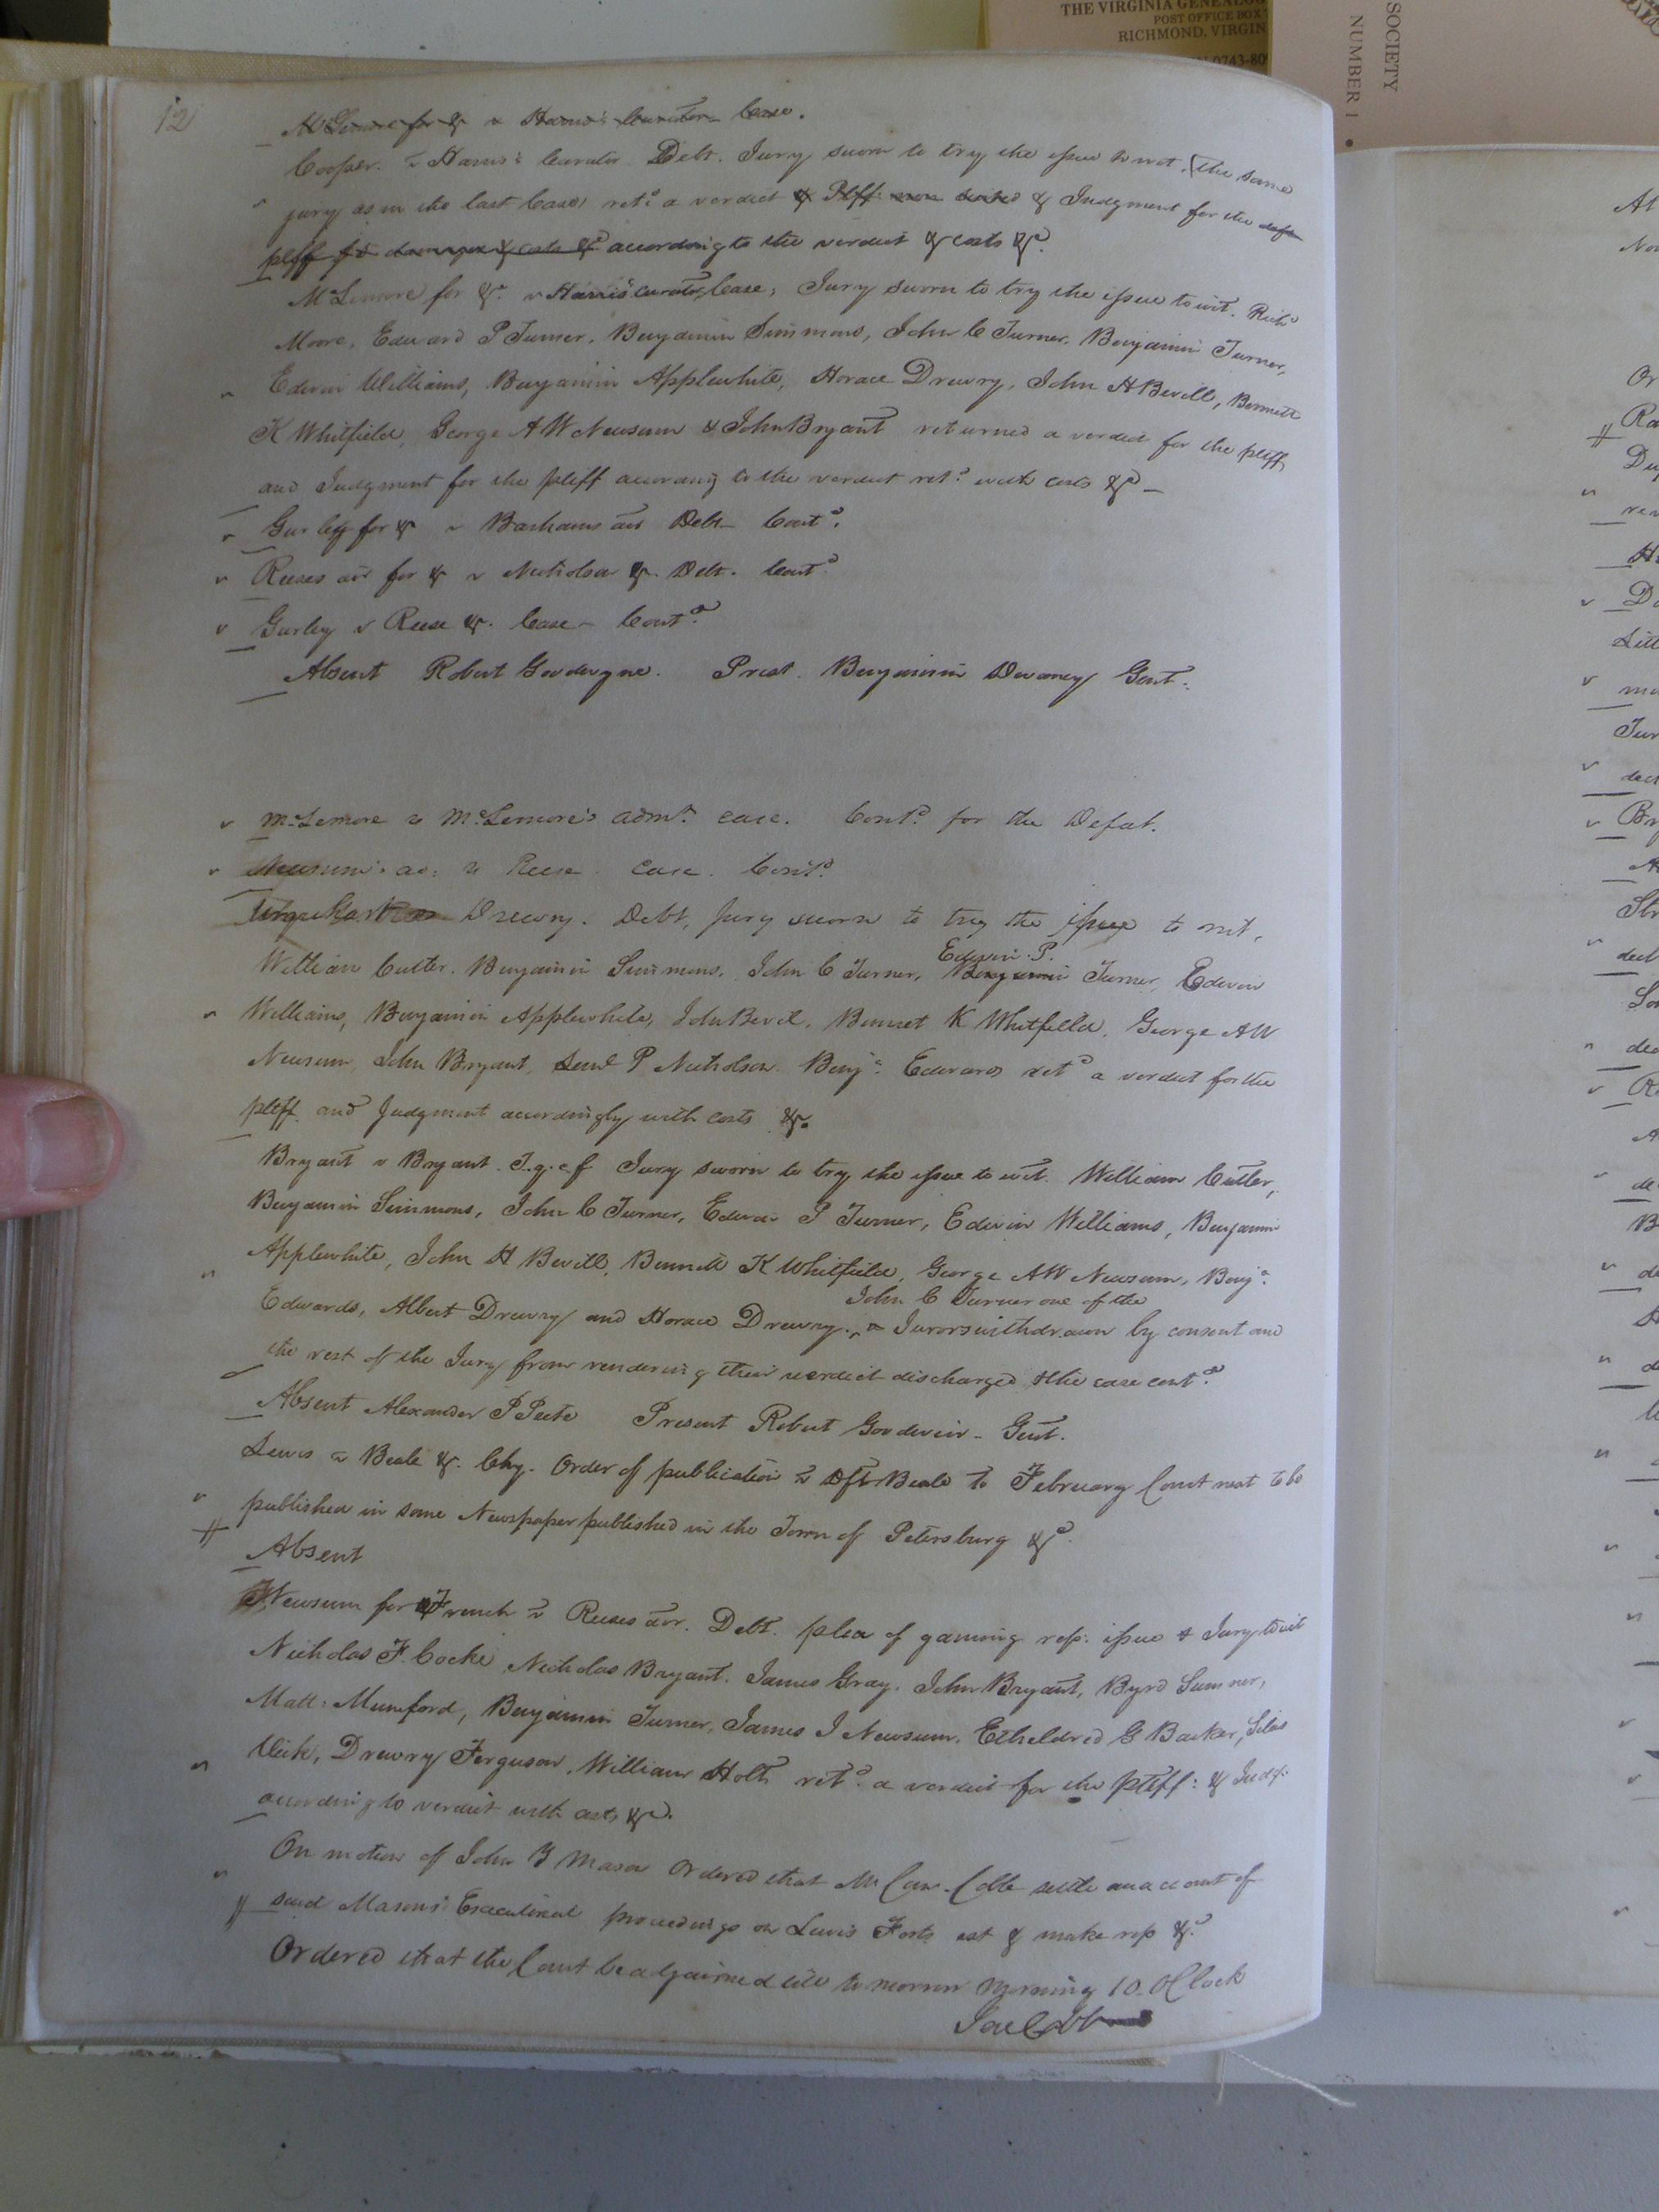 THE VIRGINIA GENEALOG
POST OFFICE BOX
RICHMOND, VIRGIN
0743-80
SOCIETY
NUMBER 1
12
McLemore for &c v Harris's Curator Case.
Cooper. v Harris's Curator Debt. Jury sworn to try the issue to wit, (the same
jury as in the last Case) retd a verdict & Plff. non suited & Judgment for the deft
pltff for damages & costs &c according to the verdict & costs &c.
McLemore for &c. v Harris' Curator, Case, Jury sworn to try the issue to wit. Richd
Moore, Edward P Turner, Benjamin Simmons, John C Turner, Benjamin Turner,
Edwin Williams, Benjamin Applewhite, Horace Drewry, John H Bevill, Bennett
K Whitfield, George A W Newsum & John Bryant returned a verdict for the pltff
and Judgment for the pltff according to the verdict retd with costs &c —
Gurley for &c v Barhams adr Debt — Contd.
Reeses adr for &c v Nicholson &c. Debt. Contd
Gurley v Reese &c. Case — Contd
Absent Robert Goodwyne. Prest. Benjamin Devaney Gent.
McLemore v McLemore's admr. case. Contd for the Defat.
Newsum's ad: v Reese. Case. Contd.
Urquhart Drewry. Debt, Jury sworn to try the issue to wit,
William Cutler, Benjamin Simmons, John C Turner, Benjamin Edwin P. Turner, Edwin
Williams, Benjamin Applewhite, John Bevil, Bennet K Whitfield, George A W
Newsum, John Bryant, Saml P Nicholson, Benja: Edwards retd a verdict for the
pltff. and Judgment accordingly with costs &c.
Bryant v Bryant. T.q.c.f Jury sworn to try the issue to wit. William Cutler,
Benjamin Simmons, John C Turner, Edwin P Turner, Edwin Williams, Benjamin
Applewhite, John H Bevill, Bennett K Whitfield, George A W Newsum, Benja:
Edwards, Albert Drewry and Horace Drewry. John C Turner one of the Jurors withdrawn by consent and
the rest of the Jury from rendering their verdict discharged & the case contd.
Absent Alexander P Peete Present Robert Goodwin — Gent.
Lewis v Beale &c. Chy. Order of publication v Dft Beale to February Court next to be
published in some Newspaper published in the Town of Petersburg &c.
Absent
Newsum for French v Reeses adr. Debt. plea of gaming rep: issue & Jury to wit
Nicholas F. Cocke, Nicholas Bryant, James Gray, John Bryant, Byrd Sumner,
Matt: Mumford, Benjamin Turner, James J Newsum, Etheldred G Barker, Silas
Vick, Drewry Ferguson, William Holt retd. a verdict for the pltff: & Judgt
according to verdict with costs &c.
On motion of John Y Mason Ordered that Mr Com. Cobb settle an account of
said Mason's Executorial proceedings on Lewis Forts est & make rep &c.
Ordered that the Court be adjourned till to morrow Morning 10. OClock